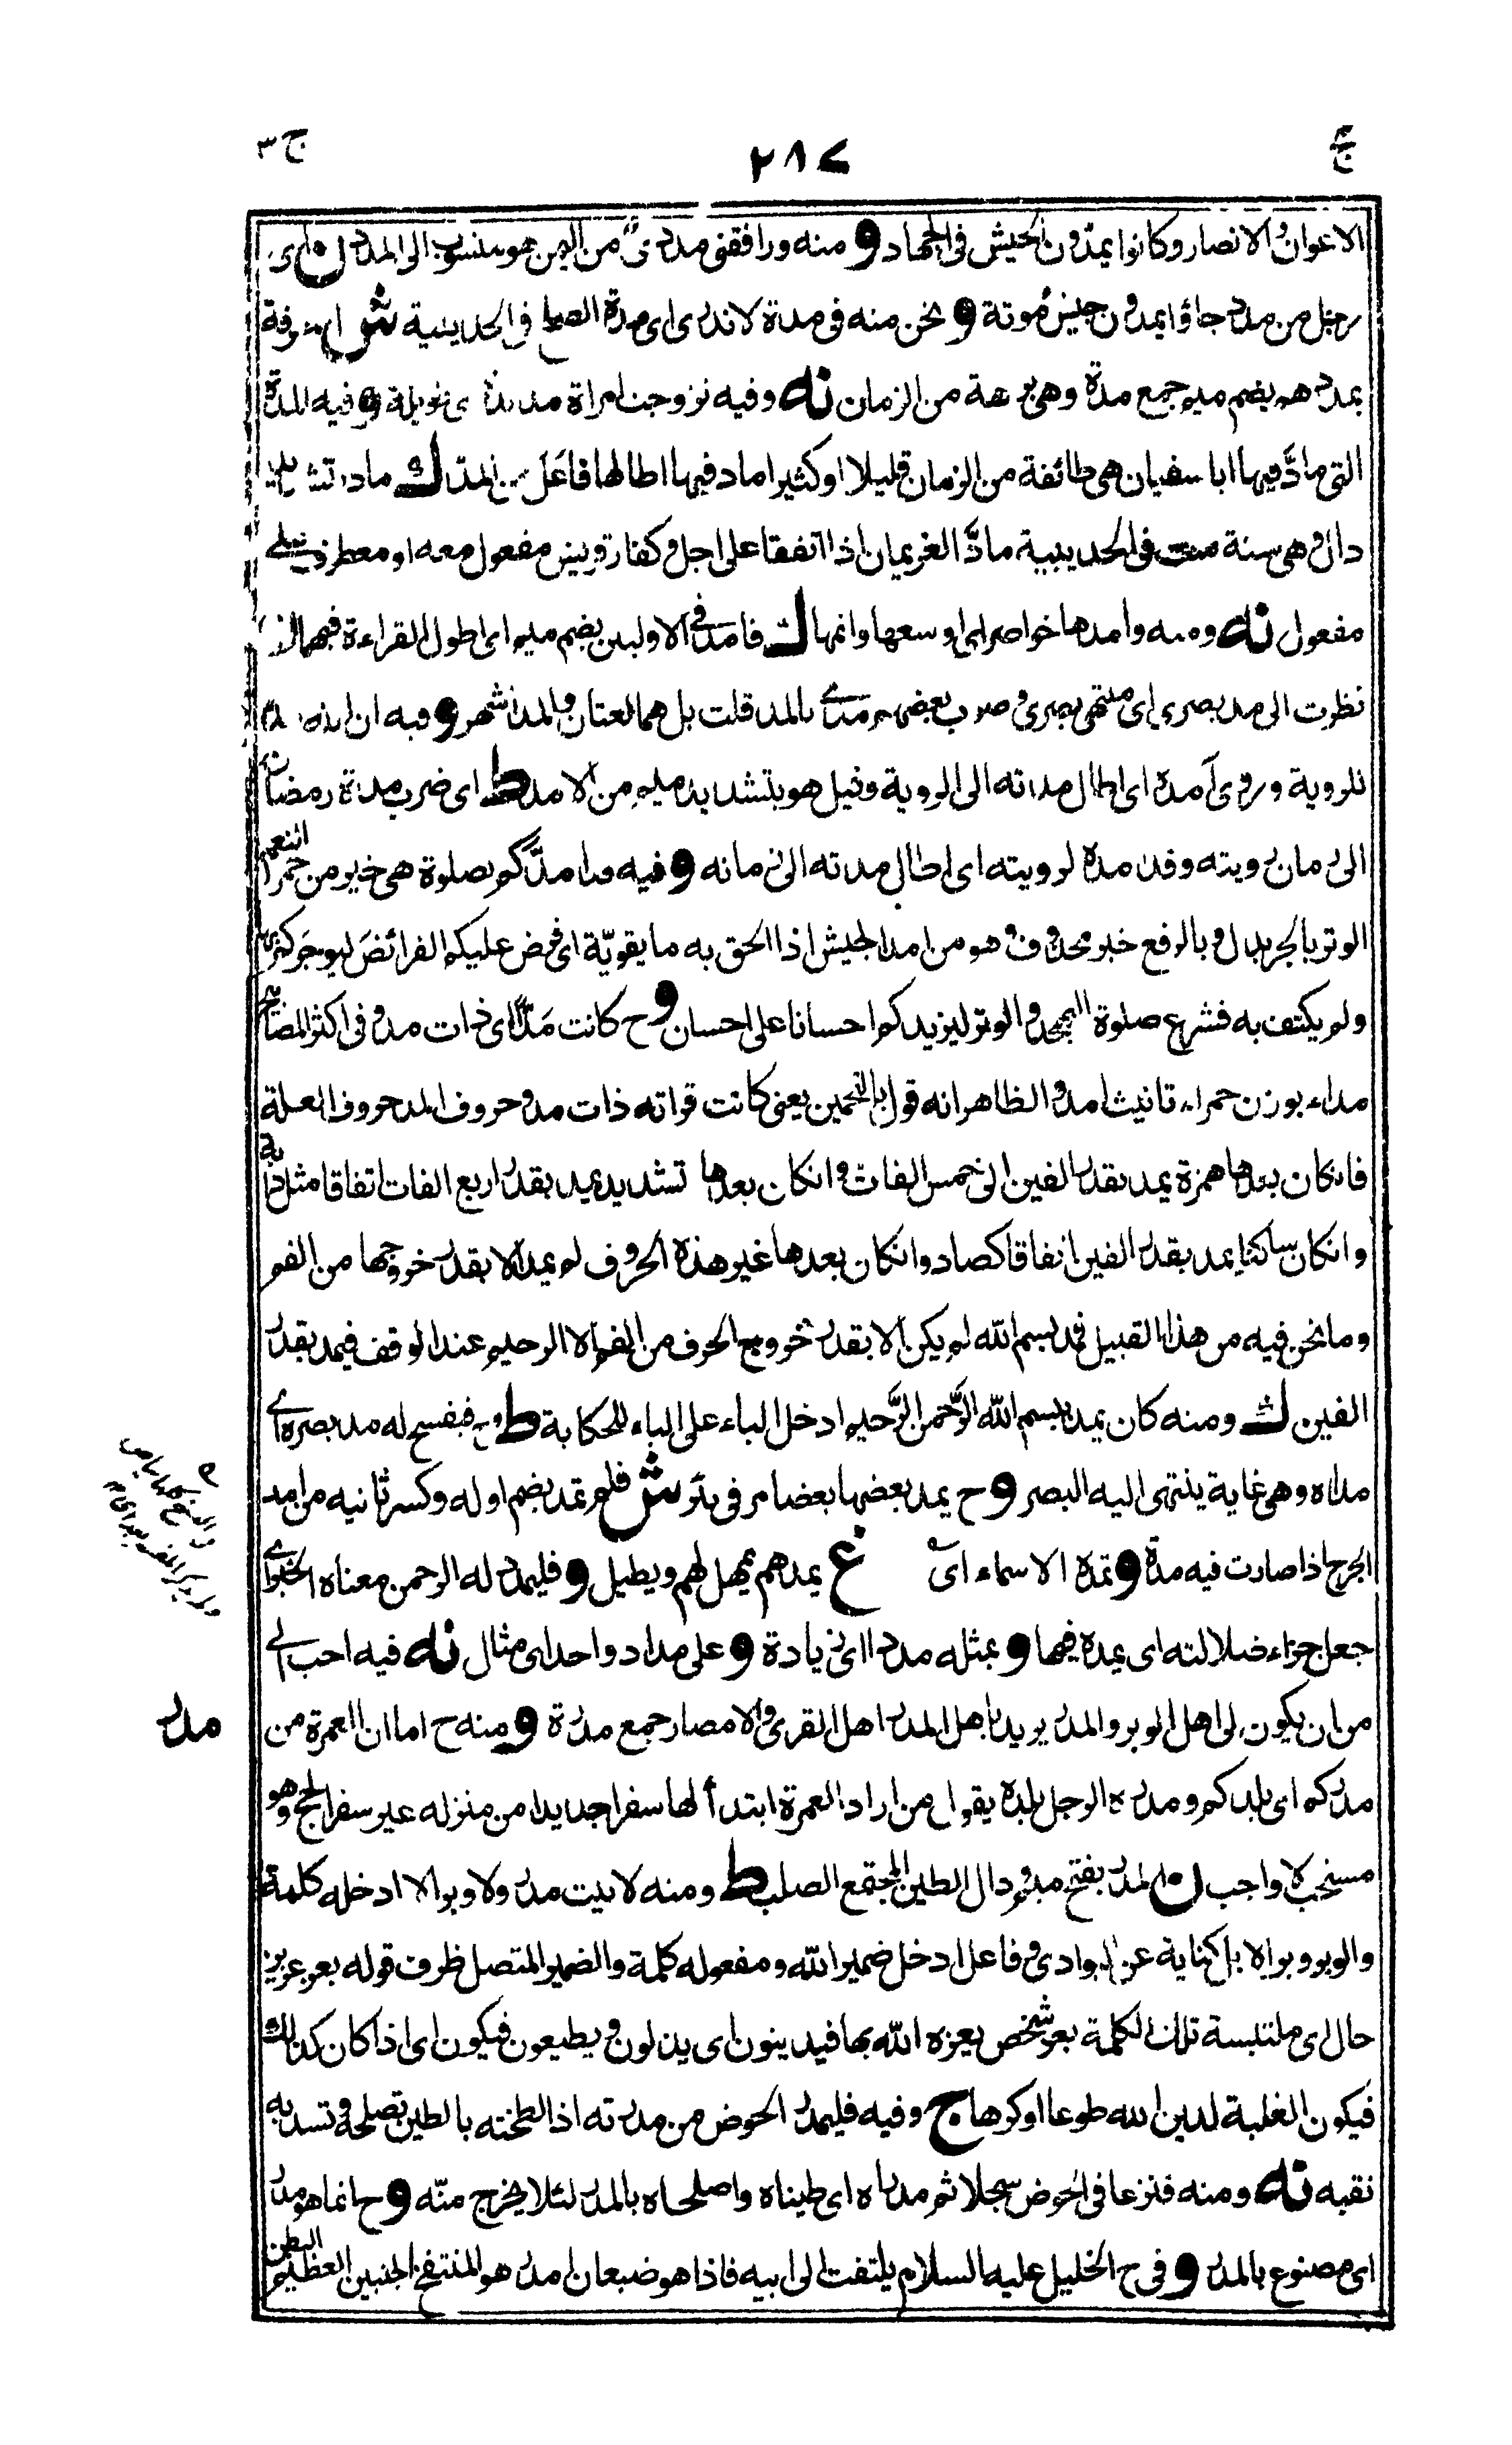 ج٣
٢٨٧
الاعوان والانصار وكانوا يمدون الجيش فى الجهاد و منه ورافقنى مددىّ من اليمن هو منسوب الى المدد ن اى
رجل من مدد جاؤا يمدون جيش مُوتة و نحن منه فى مدة لاندرى اى مدة الصلح فى الحديبية ش
بضم ميم جمع مدة وهى من الزمان نه وفيه تزوجت امراة طويلة و فيه المدة
التى مادَّ فيها ابا سفيان هى طائفة من الزمان قليلا او كثيرا ماد فيها اطالها فاعَلَ من المد ك ماد
دال وهى سنة ست فى الحديبية مادَّ الغريمان اذا اتفقا على اجل وكفار قريش مفعول معه او معطوف على
مفعول نه ومنه وامدها خواصر اى اوسعها واتمها ك فامد فى الاوليين بضم ميم اى اطول القراءة فيهما
نظرت الى مد بصرى اى منتهى بصرى و بعضهم مدى بالمد قلت بل هما لغتان والمد اشهر و فيه ان الله
للروية وروى آمده اى اطال مدته الى الروية وقيل هو بتشديد ميم من الامد ط اى ضرب مدة رمضان
الى زمان رويته وقد مده لرويته اى اطال مدته الى زمانه و فيه امدّكم بصلوة هى خير من حمر النعم
الوتر بالجر بدل وبالرفع خبر محذوف وهو من امد الجيش اذا الحق به ما يقويّة اى فرض عليكم الفرائضَ ليوجركم
ولم يكتف به فشرع صلوة التهجد والوتر ليزيدكم احسانا على احسان و ح كانت مَدًّا اى ذات مد وفى اكثر المصابيح
مداء بوزن حمراء تانيث امد والظاهر انه قول بالتخمين يعنى كانت قراته ذات مد وحروف المد حروف العلة
فانكان بعدها همزة يمد بقدر الفين الى خمس الفات وانكان بعدها تشديد يمد بقدر اربع الفات اتفاقا مثل دابة
وانكان ساكنا يمد بقدر الفين اتفاقا كصاد وانكان بعدها غير هذه الحروف لم يمد الا بقدر خروجها من الفم
وما نحن فيه من هذا القبيل فمد بسم الله لم يكن الا بقدر خروج الحرف من الفم الا الرحيم عند الوقف فيمد بقدر
الفين ك ومنه كان يمد ببسم الله الرَّحمن الرَّحيم ادخل الباء على الباء للحكاية ط وح فيفسح له مد بصره اى
مداه وهى غاية ينتهى اليه البصر و ح يمد بعضها بعضا مر فى بئر ش فلم تمد بضم اوله وكسر ثانيه من امد
الجرح اذا صارت فيه مدة و تمدة الاسماء اى غ يمدهم يمهل لهم ويطيل و فليمدد له الرحمن معناه الخبر اى
جعل جزاء ضلالته اى يمده فيها و بمثله مددا اى زيادة و على مداد واحد اى مثال نه فيه احب الى
من ان يكون لى اهل الوبر والمدر يريد باهل المدر اهل القرى والامصار جمع مدرة و منه ح اما ان العمرة من
مدر
مدركم اى بلدكم ومدرة الرجل بلده يقول من اراد العمرة ابتدأ لها سفرا جديدا من منزله غير سفر الحج وهو
مستحب لا واجب ن المدر بفتح ميم ودال الطين المجتمع الصلب ط ومنه لا بيت مدر ولا وبر الا ادخله كلمة
والوبر وبر الابل كناية عن البوادى وفاعل ادخل ضمير الله ومفعوله كلمة والضمير المتصل ظرف قوله بعز عزيز
حال اى ملتبسة تلك الكلمة بعز شخص يعزه الله بها فيدينون اى يذلون ويطيعون فيكون اى اذا كان كذلك
فيكون الغلبة لدين الله طوعا او كرها ج وفيه فليمدر الحوض من مدرته اذا لطخته بالطين تصلحه وتسد به
نقبه نه ومنه فنزعا فى الحوض سجلا ثم مدراه اى طيناه واصلحاه بالمدر لئلا يخرج منّه و ح انما هو مدر
اى مصنوع بالمدر و فى ح الخليل عليه السلام يلتفت الى ابيه فاذا هو ضبعان امدر هو المنتفخ الجنبين العظيم البطن